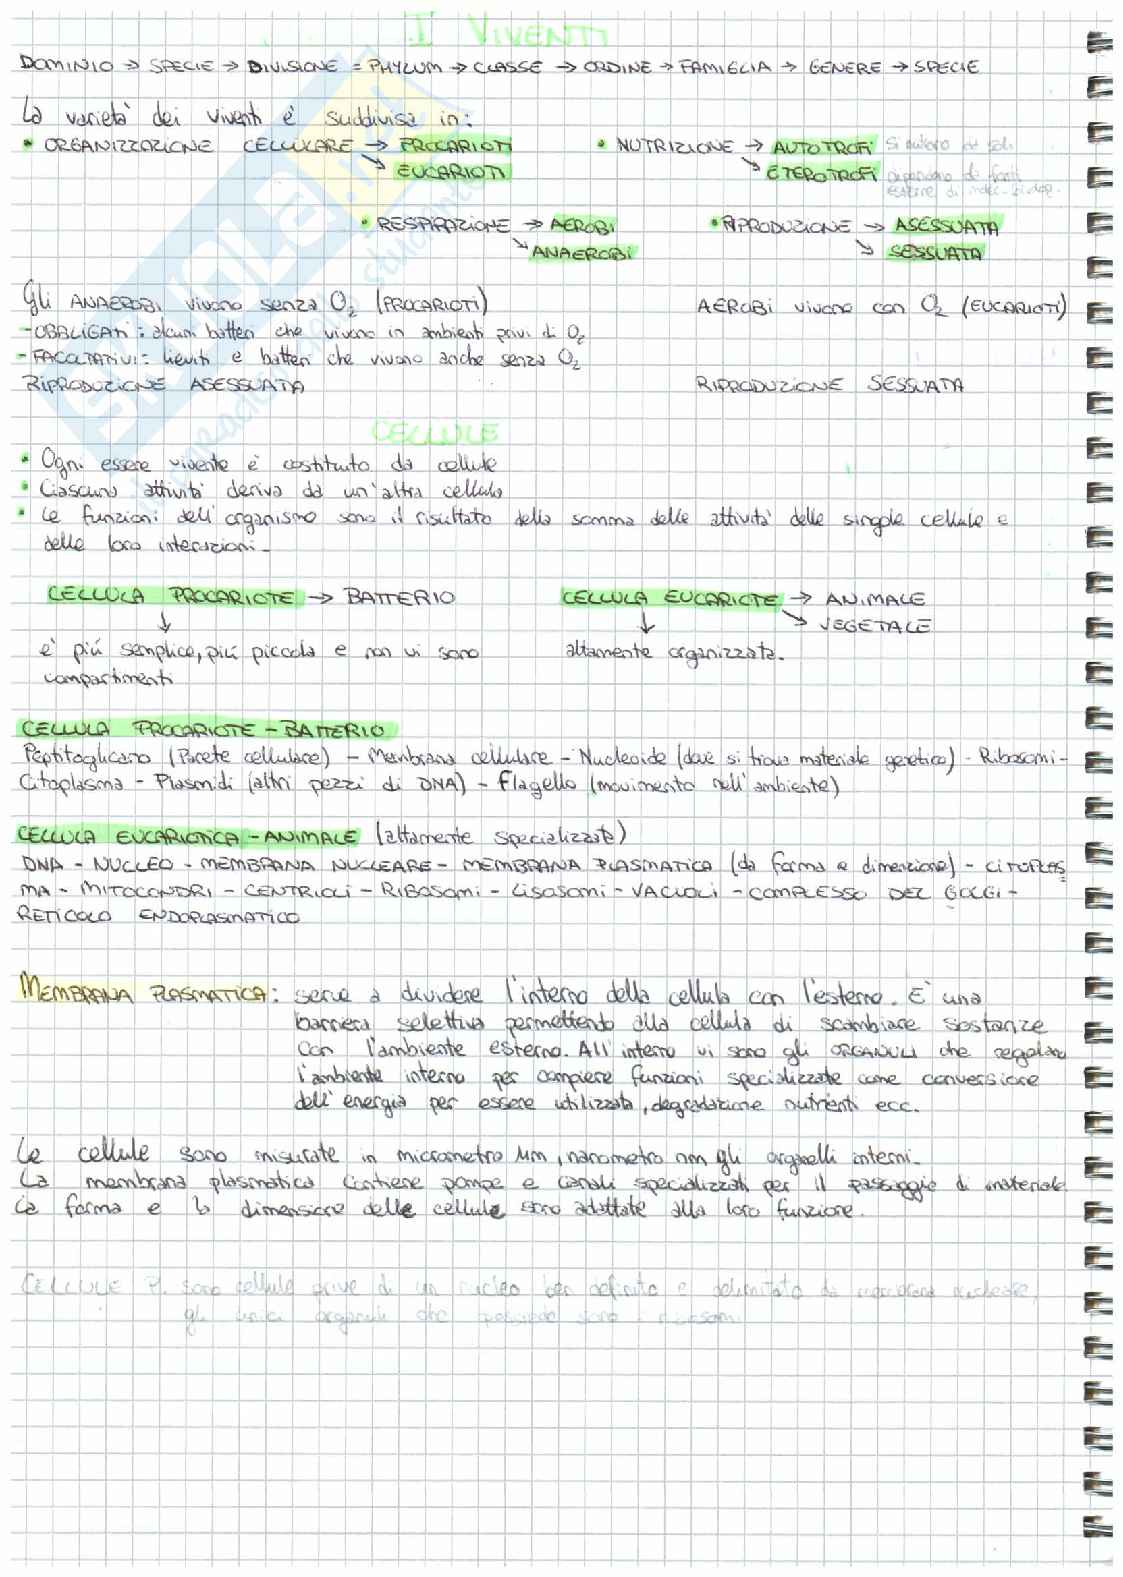 I VIVENTI
DOMINIO → SPECIE → DIVISIONE = PHYLUM → CLASSE → ORDINE → FAMIGLIA → GENERE → SPECIE
La varietà dei viventi è suddivisa in:
• ORGANIZZAZIONE CELLULARE → PROCARIOTI • NUTRIZIONE → AUTOTROFI si nutrono da soli
↘ EUCARIOTI ↘ ETEROTROFI dipendono da fonti
esterne di
• RESPIRAZIONE → AEROBI • RIPRODUZIONE → ASESSUATA
↘ ANAEROBI ↘ SESSUATA
Gli ANAEROBI vivono senza O2 (PROCARIOTI) AEROBI vivono con O2 (EUCARIOTI)
- OBBLIGATI: alcuni batteri che vivono in ambienti privi di O2
- FACOLTATIVI: lieviti e batteri che vivono anche senza O2
RIPRODUZIONE ASESSUATA RIPRODUZIONE SESSUATA
CELLULE
• Ogni essere vivente è costituito da cellule
• Ciascuna attività deriva da un'altra cellula
• Le funzioni dell'organismo sono il risultato della somma delle attività delle singole cellule e
delle loro interazioni.
CELLULA PROCARIOTE → BATTERIO CELLULA EUCARIOTE → ANIMALE
↓ ↓ ↘ VEGETALE
è più semplice, più piccola e non vi sono altamente organizzata.
compartimenti
CELLULA PROCARIOTE - BATTERIO
Peptitoglicano (Parete cellulare) - Membrana cellulare - Nucleoide (dove si trova materiale genetico) - Ribosomi -
Citoplasma - Plasmidi (altri pezzi di DNA) - Flagello (movimento nell'ambiente)
CELLULA EUCARIOTICA - ANIMALE (altamente specializzate)
DNA - NUCLEO - MEMBRANA NUCLEARE - MEMBRANA PLASMATICA (da forma e dimensione) - CITOPLAS
MA - MITOCONDRI - CENTRIOLI - RIBOSOMI - LISOSOMI - VACUOLI - COMPLESSO DEL GOLGI -
RETICOLO ENDOPLASMATICO
MEMBRANA PLASMATICA: serve a dividere l'interno della cellula con l'esterno. E' una
barriera selettiva permettendo alla cellula di scambiare sostanze
con l'ambiente esterno. All'interno vi sono gli ORGANULI che regolano
l'ambiente interno per compiere funzioni specializzate come conversione
dell'energia per essere utilizzata, degradazione nutrienti ecc.
Le cellule sono misurate in micrometro μm, nanometro nm gli organelli interni.
La membrana plasmatica contiene pompe e canali specializzati per il passaggio di materiale.
La forma e la dimensione delle cellule sono adattate alla loro funzione.
CELLULE P. sono cellule prive di un nucleo ben definito e delimitato da membrana nucleare,
gli unici organuli che possiedo sono i ribosomi.